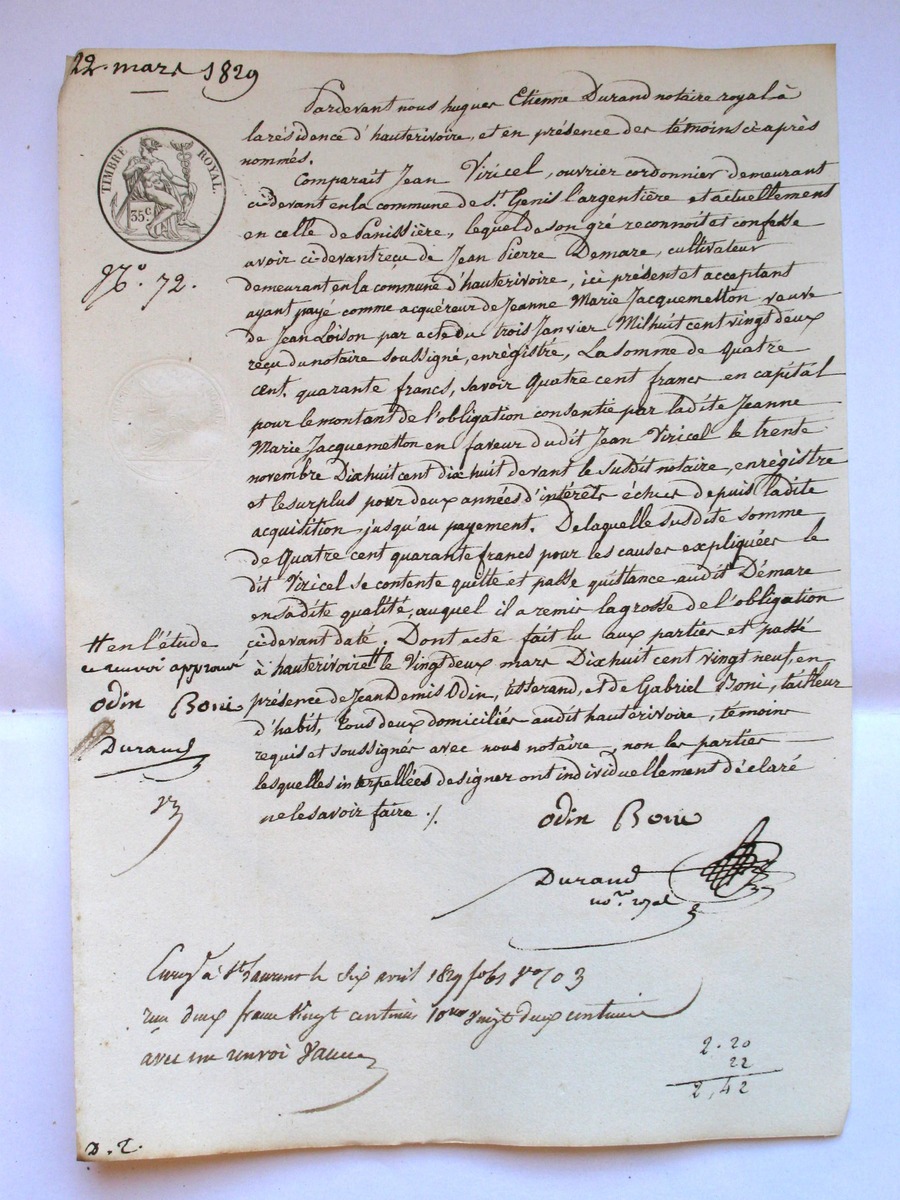 22. mars 1829
TIMBRE ROYAL.
35 c
N.º 72.
Pardevant nous hugues Etienne Durand notaire royal à
la résidence d'hauterivoire, et en présence des témoins ci après
nommés.
Comparait Jean Viricel, ouvrier cordonnier demeurant
ci devant en la commune de St. Genis l'argentière et actuellement
en celle de Panissière, lequel de son gré reconnoit et confesse
avoir ci-devant reçu de Jean Pierre Demare, cultivateur
demeurant en la commune d'hauterivoire, ici présent et acceptant
ayant payé comme acquéreur de Jeanne Marie Jacquemetton veuve
de Jean Loison par acte du trois Janvier Mil huit cent vingt deux
reçu du notaire soussigné, enrégistré, La somme de quatre
cent quarante francs, savoir quatre cent francs en capital
pour le montant de l'obligation consentie par ladite Jeanne
Marie Jacquemetton en faveur dudit Jean Viricel le trente
novembre Dix huit cent dix huit devant le susdit notaire, enrégistré
et le surplus pour deux années d'intérêts échues depuis ladite
acquisition jusqu'au payement. De laquelle susdite somme
de quatre cent quarante francs pour les causes expliquées le
dit Viricel se contente quitte et passe quittance audit Démare
en sadite qualité, auquel il a remis la grosse de l'obligation
ci devant daté. Dont acte fait lu aux parties et passé
à hauterivoire # le vingt deux mars Dix huit cent vingt neuf, en
présence de Jean Denis Odin, tisserand, et de Gabriel Boni, tailleur
d'habit, tous deux domiciliés audit hauterivoire, témoins
requis et soussignés avec nous notaire, non les parties
lesquelles interpellées de signer ont individuellement déclaré
ne le savoir faire ./.
# en l'étude
ce renvoi approuvé
Odin Boni
Durand
Odin Boni
Durand
nore. royal
Enregé à St Laurent le six avril 1829 fo 61 Vo
reçu deux francs vingt centimes 10eme vingt deux centimes
avec un renvoi
2.20
22
2,42
D. T.